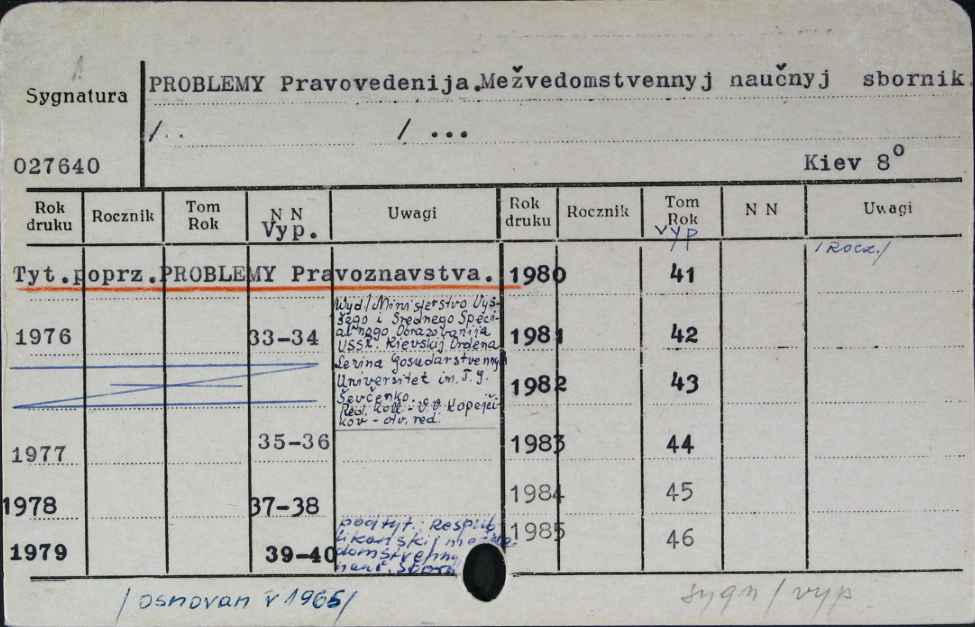 PROBLEMY Pravovedenija.Mežvedomstvennyj naučnyj sbornik
Sygnatura
/.. / ...
027640 Kiev 8°
Rok druku Rocznik Tom Rok N N Vyp. Uwagi Rok druku Rocznik Tom Rok vyp N N Uwagi
/Rocz./
Tyt.poprz.PROBLEMY Pravoznavstva. 1980 41
Wyd./Ministerstvo Vys-
šego i Srednego Speci-
al'nogo Obrazovanija
USSR. Kievskij Ordena
Lenina Gosudarstvennyj
Universitet im. T.G.
Ševčenko.
Red. koll. - V.V. Kopejči-
kov - otv. red.
1976 33-34 1981 42
1982 43
1977 35-36 1983 44
1978 37-38 1984 45
1979 39-40 1985 46
podtyt.: Respub
likanskij mežve
domstvenny
nauč. sborn
/osnovan v 1965/ sygn/vyp.